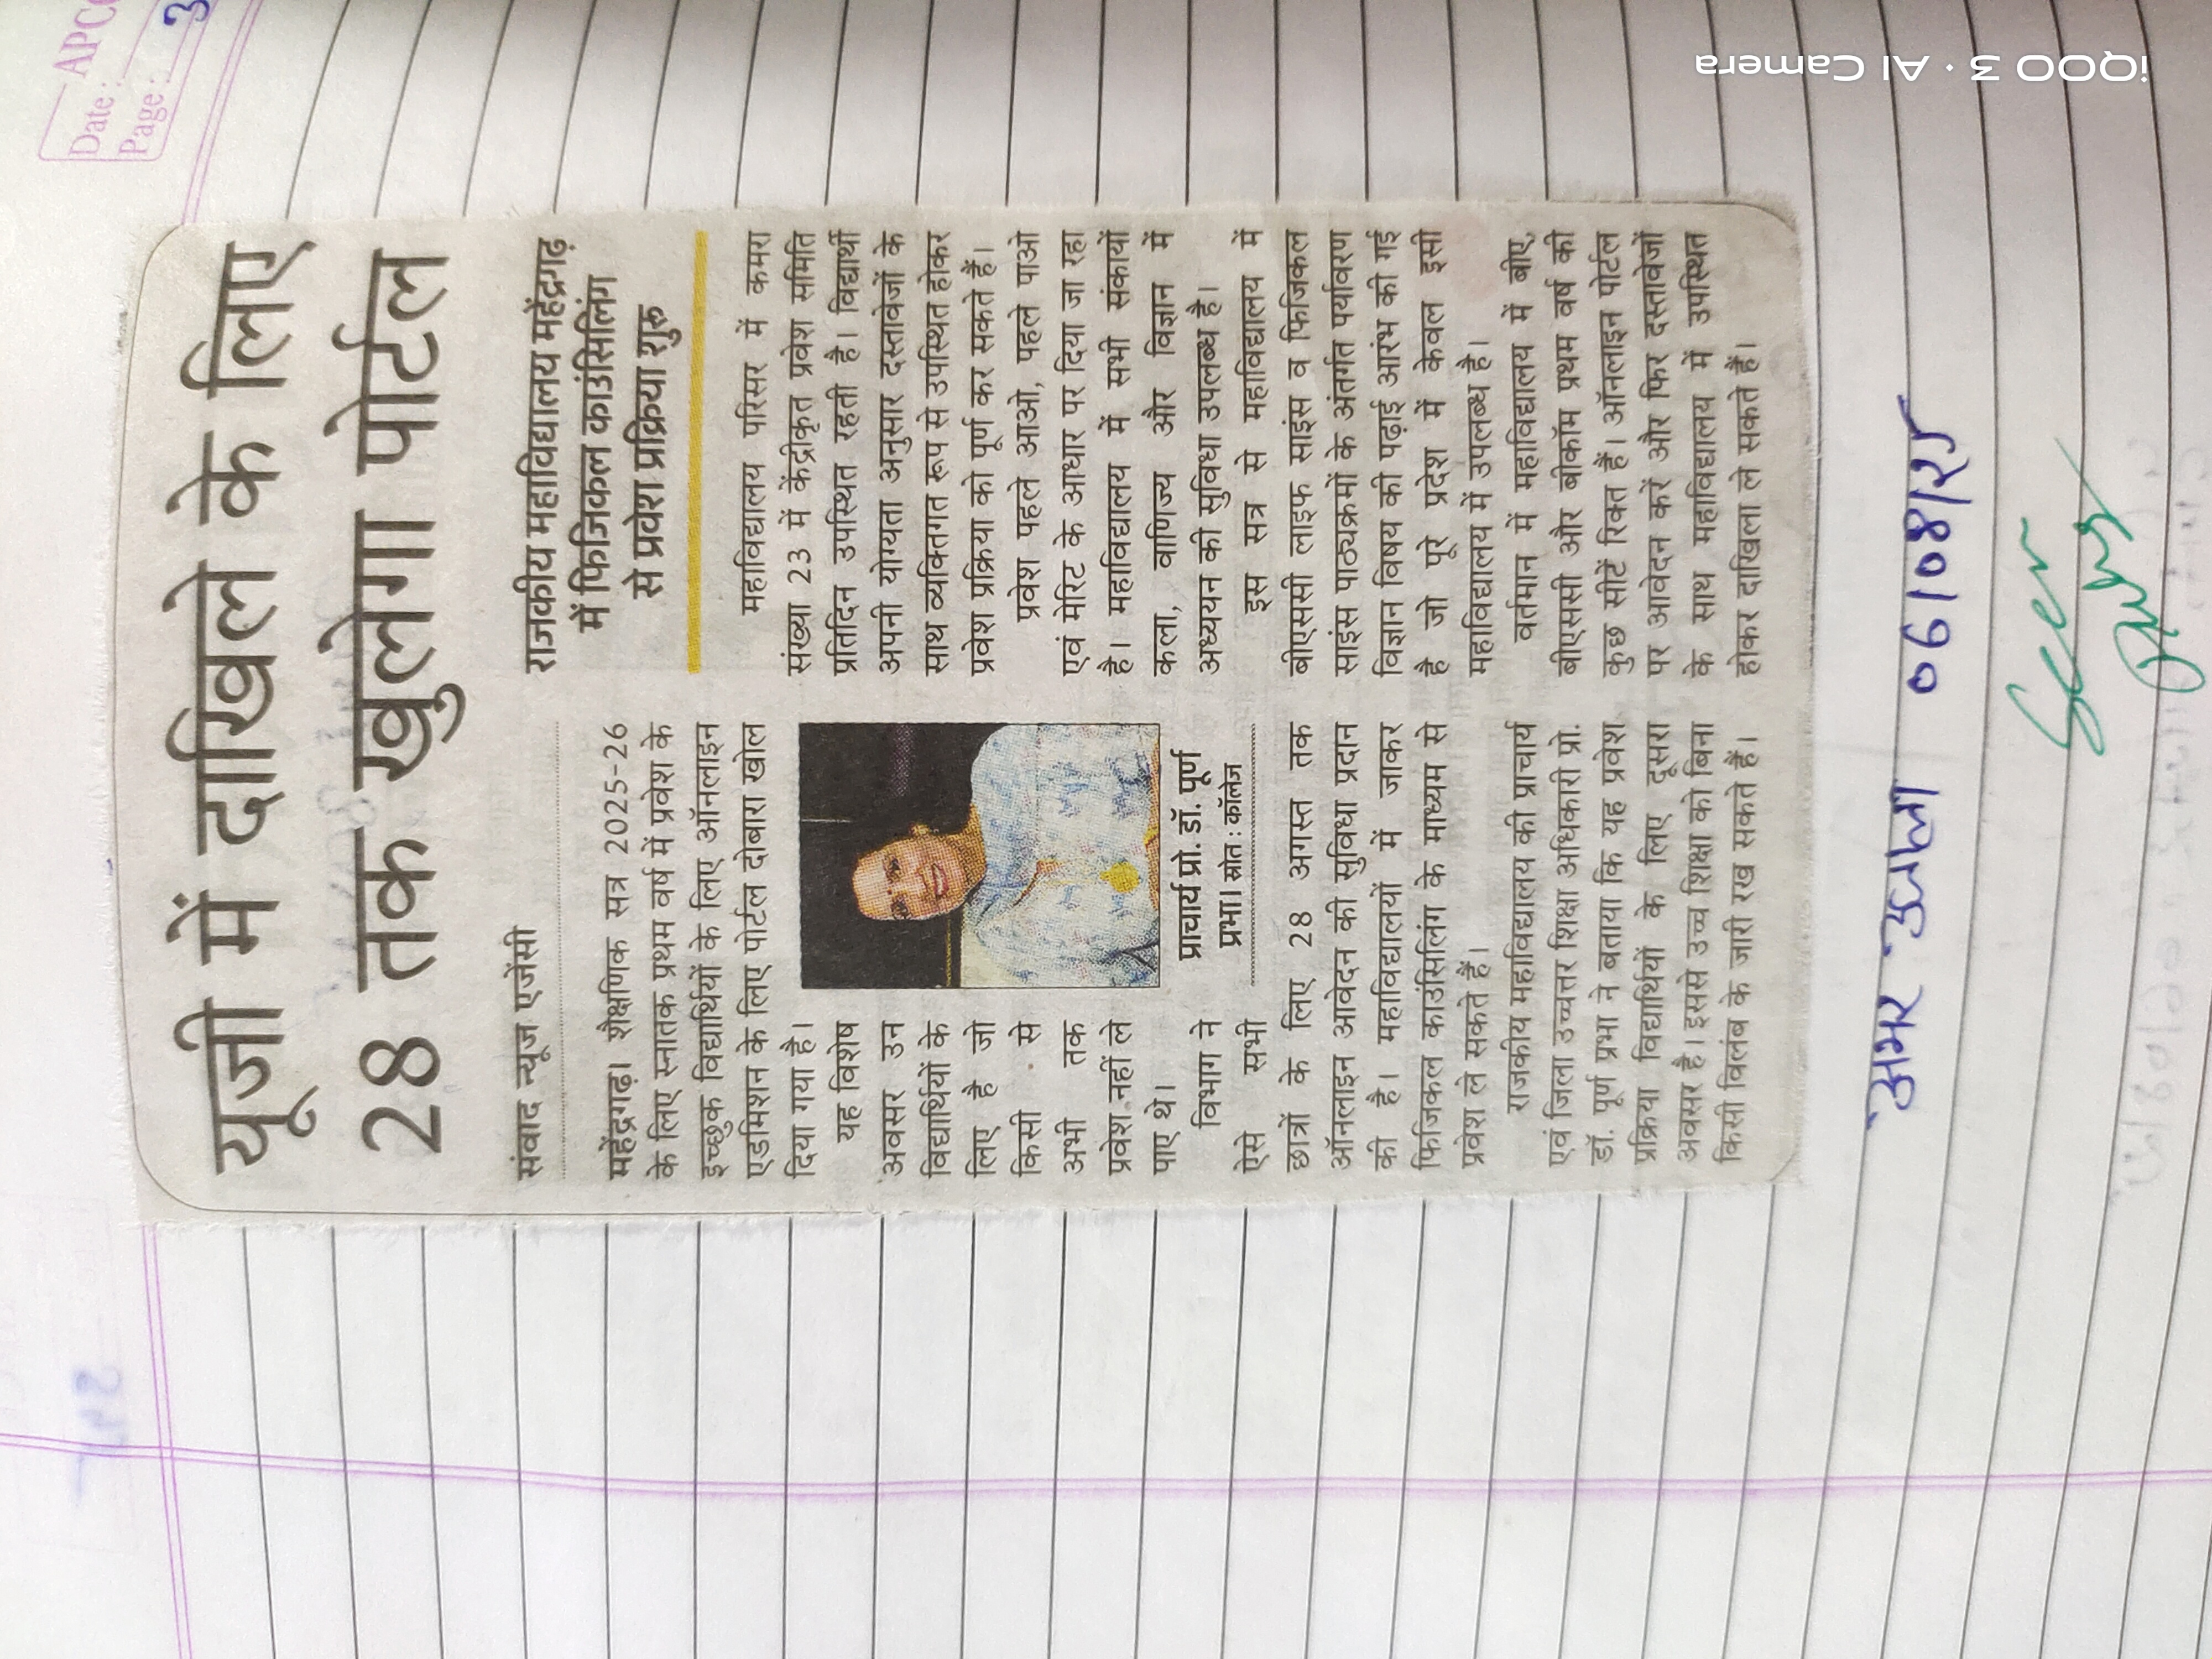 APCO
Date :
Page : 3
यूजी में दाखिले के लिए
28 तक खुलेगा पोर्टल
संवाद न्यूज एजेंसी
महेंद्रगढ़। शैक्षणिक सत्र 2025-26
के लिए स्नातक प्रथम वर्ष में प्रवेश के
इच्छुक विद्यार्थियों के लिए ऑनलाइन
एडमिशन के लिए पोर्टल दोबारा खोल
दिया गया है।
यह विशेष
अवसर उन
विद्यार्थियों के
लिए है जो
किसी से
अभी तक
प्रवेश नहीं ले
पाए थे।
विभाग ने
ऐसे सभी
प्राचार्य प्रो. डॉ. पूर्ण
प्रभा। स्रोत : कॉलेज
छात्रों के लिए 28 अगस्त तक
ऑनलाइन आवेदन की सुविधा प्रदान
की है। महाविद्यालयों में जाकर
फिजिकल काउंसिलिंग के माध्यम से
प्रवेश ले सकते हैं।
राजकीय महाविद्यालय की प्राचार्य
एवं जिला उच्चत्तर शिक्षा अधिकारी प्रो.
डॉ. पूर्ण प्रभा ने बताया कि यह प्रवेश
प्रक्रिया विद्यार्थियों के लिए दूसरा
अवसर है। इससे उच्च शिक्षा को बिना
किसी विलंब के जारी रख सकते हैं।
राजकीय महाविद्यालय महेंद्रगढ़
में फिजिकल काउंसिलिंग
से प्रवेश प्रक्रिया शुरू
महाविद्यालय परिसर में कमरा
संख्या 23 में केंद्रीकृत प्रवेश समिति
प्रतिदिन उपस्थित रहती है। विद्यार्थी
अपनी योग्यता अनुसार दस्तावेजों के
साथ व्यक्तिगत रूप से उपस्थित होकर
प्रवेश प्रक्रिया को पूर्ण कर सकते हैं।
प्रवेश पहले आओ, पहले पाओ
एवं मेरिट के आधार पर दिया जा रहा
है। महाविद्यालय में सभी संकायों
कला, वाणिज्य और विज्ञान में
अध्ययन की सुविधा उपलब्ध है।
इस सत्र से महाविद्यालय में
बीएससी लाइफ साइंस व फिजिकल
साइंस पाठ्यक्रमों के अंतर्गत पर्यावरण
विज्ञान विषय की पढ़ाई आरंभ की गई
है जो पूरे प्रदेश में केवल इसी
महाविद्यालय में उपलब्ध है।
वर्तमान में महाविद्यालय में बीए,
बीएससी और बीकॉम प्रथम वर्ष की
कुछ सीटें रिक्त हैं। ऑनलाइन पोर्टल
पर आवेदन करें और फिर दस्तावेजों
के साथ महाविद्यालय में उपस्थित
होकर दाखिला ले सकते हैं।
अमर उजाला
Seen
iQOO 3 · AI Camera